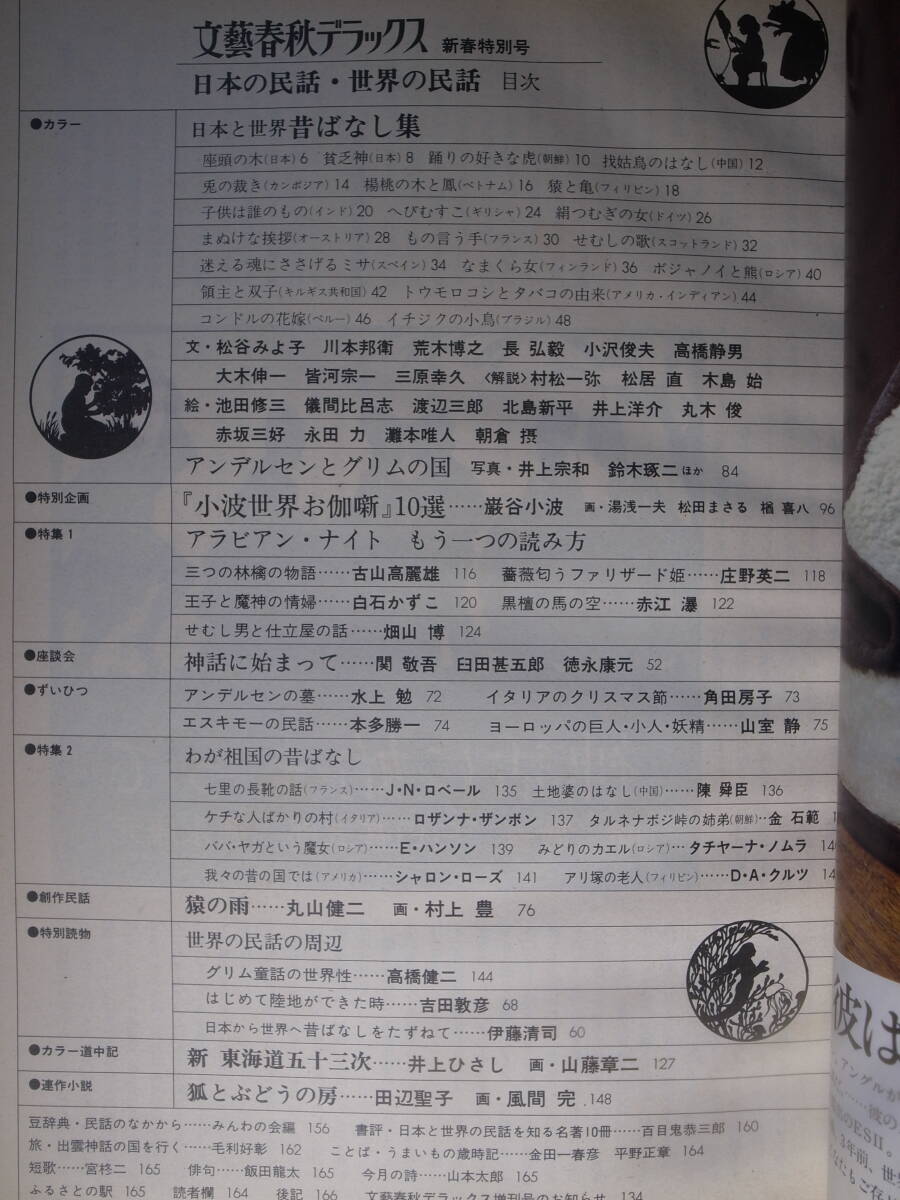 文藝春秋デラックス 新春特別号
日本の民話・世界の民話 目次
●カラー
日本と世界昔ばなし集
座頭の木(日本)6 貧乏神(日本)8 踊りの好きな虎(朝鮮)10 找姑鳥のはなし(中国)12
兎の裁き(カンボジア)14 楊桃の木と鳳(ベトナム)16 猿と亀(フィリピン)18
子供は誰のもの(インド)20 へびむすこ(ギリシャ)24 絹つむぎの女(ドイツ)26
まぬけな挨拶(オーストリア)28 もの言う手(フランス)30 せむしの歌(スコットランド)32
迷える魂にささげるミサ(スペイン)34 なまくら女(フィンランド)36 ボジャノイと熊(ロシア)40
領主と双子(キルギス共和国)42 トウモロコシとタバコの由来(アメリカ・インディアン)44
コンドルの花嫁(ペルー)46 イチジクの小鳥(ブラジル)48
文・松谷みよ子 川本邦衛 荒木博之 長 弘毅 小沢俊夫 高橋静男
大木伸一 皆河宗一 三原幸久 〈解説〉村松一弥 松居 直 木島 始
絵・池田修三 儀間比呂志 渡辺三郎 北島新平 井上洋介 丸木 俊
赤坂三好 永田 力 灘本唯人 朝倉 摂
アンデルセンとグリムの国 写真・井上宗和 鈴木琢二ほか 84
●特別企画
『小波世界お伽噺』10選……巌谷小波 画・湯浅一夫 松田まさる 楢 喜八 96
●特集1
アラビアン・ナイト もう一つの読み方
三つの林檎の物語……古山高麗雄 116 薔薇匂うファリザード姫……庄野英二 118
王子と魔神の情婦……白石かずこ 120 黒檀の馬の空……赤江 瀑 122
せむし男と仕立屋の話……畑山 博 124
●座談会
神話に始まって……関 敬吾 臼田甚五郎 徳永康元 52
●ずいひつ
アンデルセンの墓……水上 勉 72 イタリアのクリスマス節……角田房子 73
エスキモーの民話……本多勝一 74 ヨーロッパの巨人・小人・妖精……山室 静 75
●特集2
わが祖国の昔ばなし
七里の長靴の話(フランス)……J・N・ロベール 135 土地婆のはなし(中国)……陳 舜臣 136
ケチな人ばかりの村(イタリア)……ロザンナ・ザンボン 137 タルネナボジ峠の姉弟(朝鮮)‥金 石範
ババ・ヤガという魔女(ロシア)……E・ハンソン 139 みどりのカエル(ロシア)…タチヤーナ・ノムラ 14
我々の昔の国では(アメリカ)……シャロン・ローズ 141 アリ塚の老人(フィリピン)……D・A・クルツ 14
●創作民話
猿の雨……丸山健二 画・村上 豊 76
●特別読物
世界の民話の周辺
グリム童話の世界性……高橋健二 144
はじめて陸地ができた時……吉田敦彦 68
日本から世界へ昔ばなしをたずねて……伊藤清司 60
●カラー道中記
新 東海道五十三次……井上ひさし 画・山藤章二 127
●連作小説
狐とぶどうの房……田辺聖子 画・風間 完 148
豆辞典・民話のなかから……みんわの会編 156 書評・日本と世界の民話を知る名著10冊……百目鬼恭三郎 160
旅・出雲神話の国を行く……毛利好彰 162 ことば・うまいもの歳時記……金田一春彦 平野正章 164
短歌……宮柊二 165 俳句……飯田龍太 165 今月の詩……山本太郎 165
ふるさとの駅 165 読者欄 164 後記 166 文藝春秋デラックス増刊号のお知らせ 134
彼は
アングルが
彼の
のESII。
3年前、世